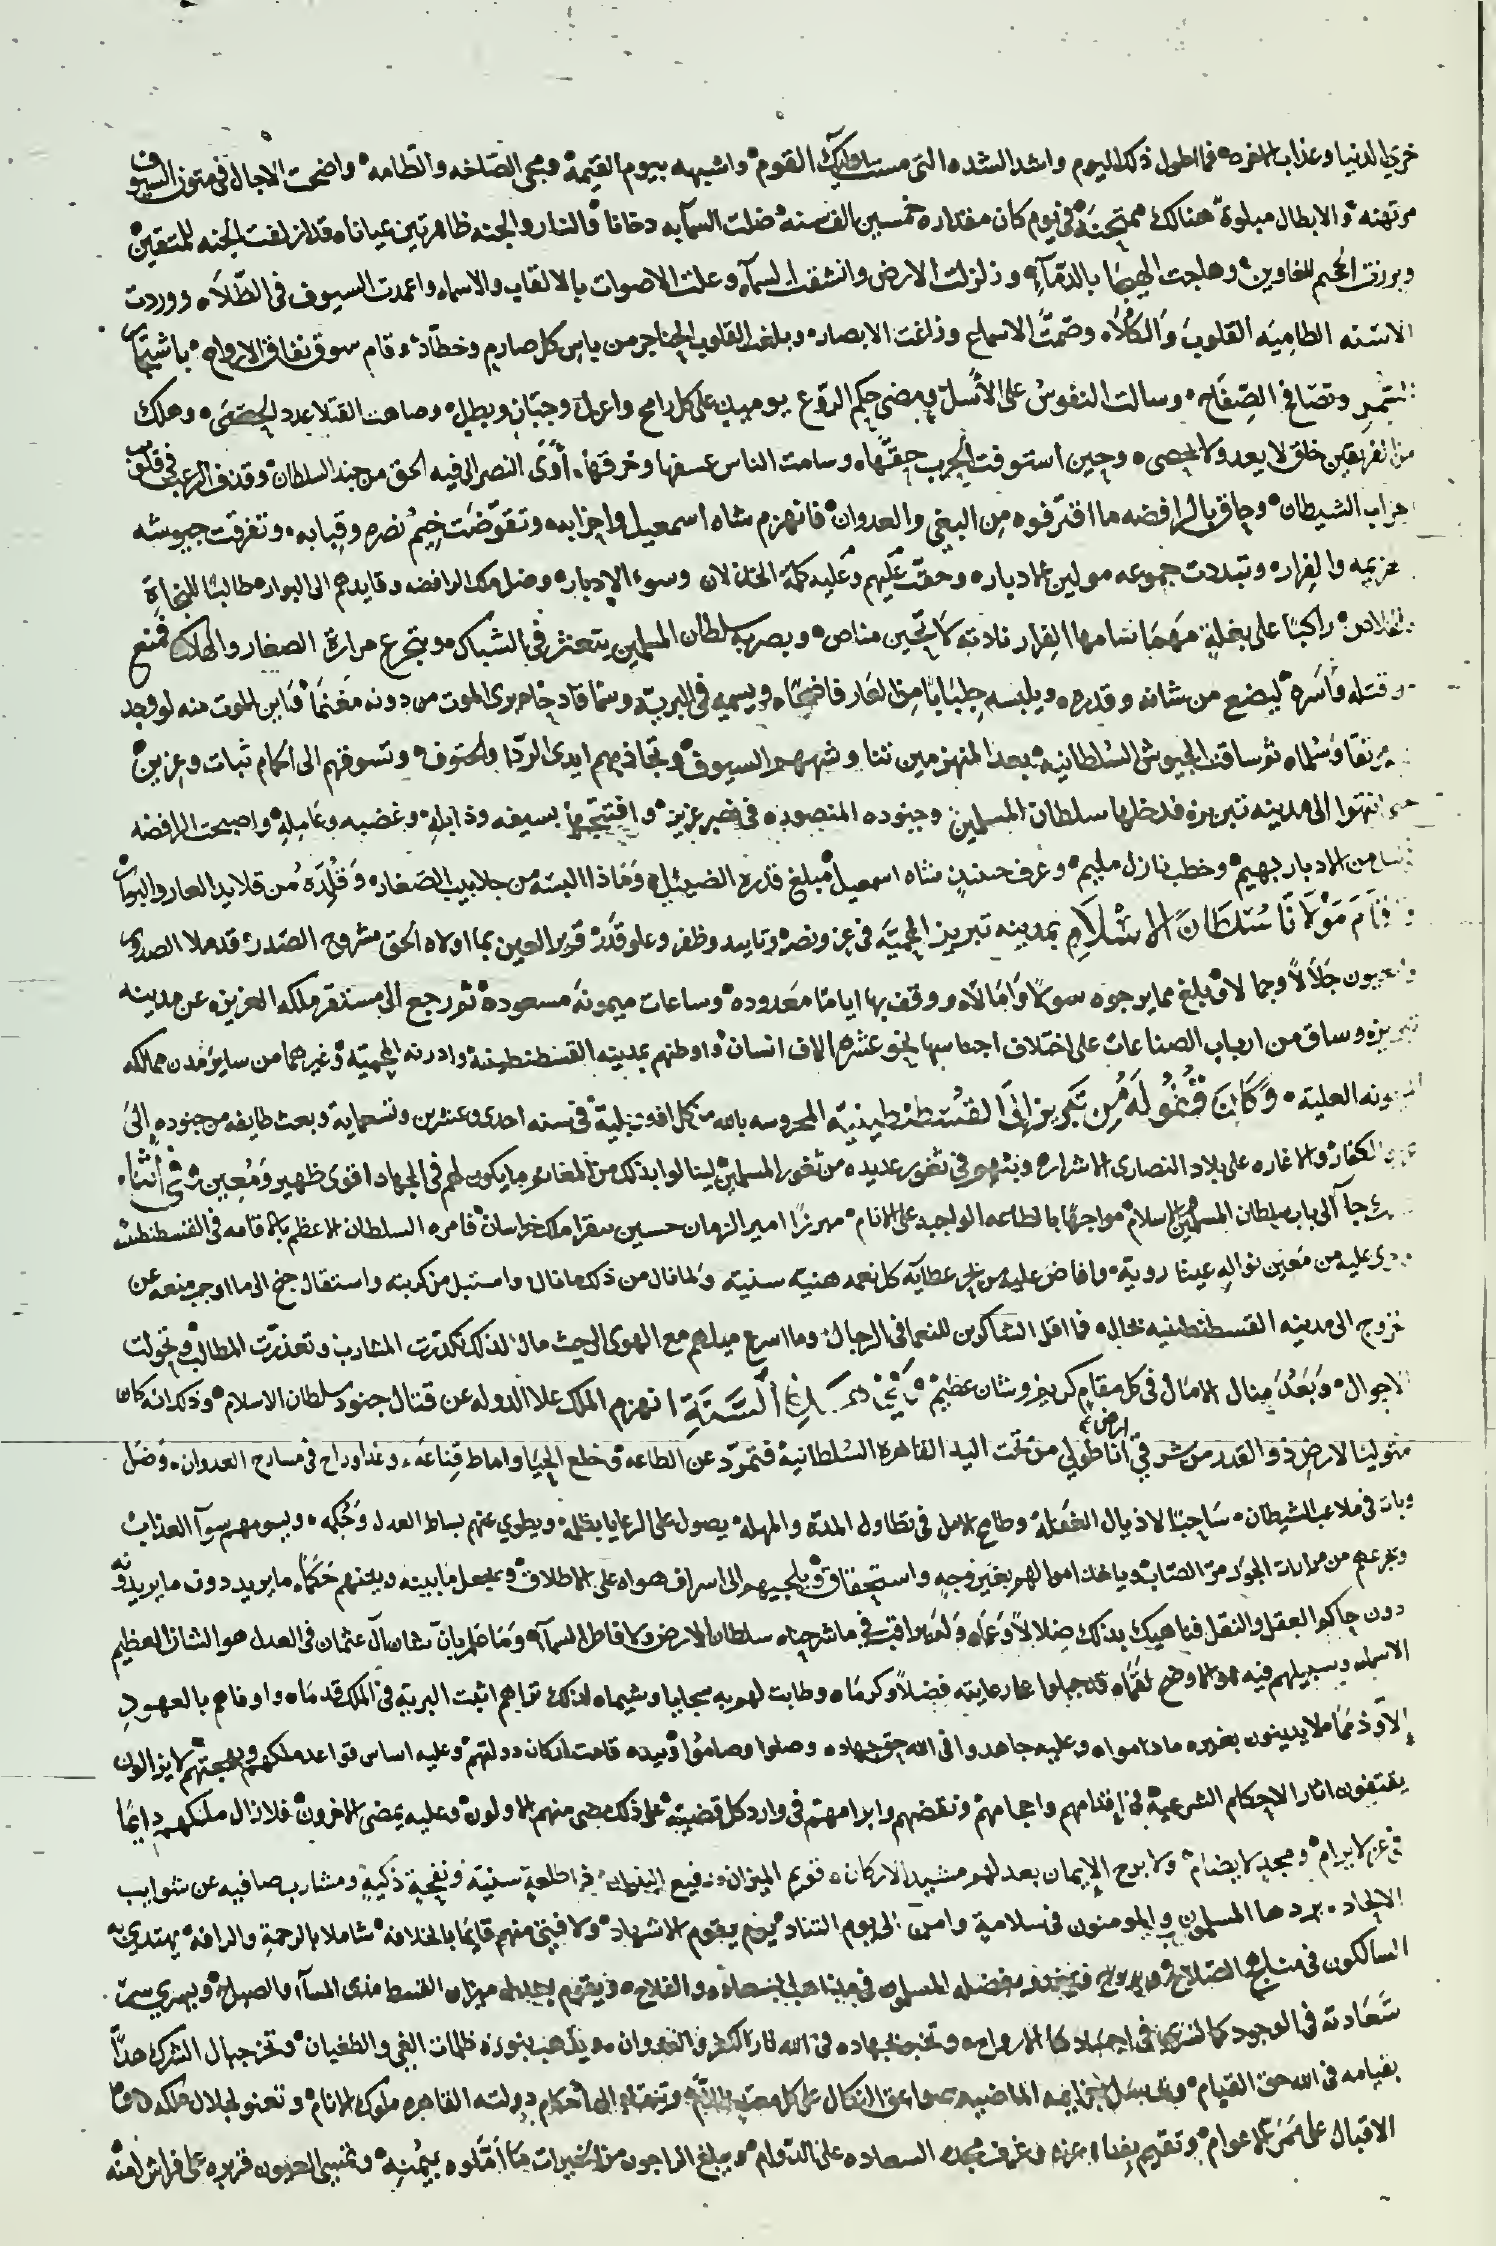 خزي الدنيا وعذاب الاخره فما اطول ذلك اليوم واشد الشده التي مست القوم واشبهه بيوم القيمة ومجي الصاخه والطامه واضحت الاجال في متون السيوف
مرتهنه والابطال مبلوة هنالك ممتحنة في يوم كان مقداره خمسين الف سنه ضلت السما به دخانا والنار والجنه ظاهرتين عيانا قد ازلفت الجنه للمتقين
وبرزت الجحيم للغاوين وهاجت الهيجا بالدما وزلزلت الارض وانشقت السما وعلت الاصوات بالالقاب والاسما واغمدت السيوف في الطلا ووردت
الاسنه الطامية القلوب والكلاه وصمت الاسماع وزاغت الابصار وبلغت القلوب الحناجر من باس كل صارم وخطار وقام سوق نفاق الارواح باشتباك
السمر وتصافح الصفاح وسالت النفوس على الاسل ومضى حكم الروع يوميذ على كل رامح واعزل وجبان وبطل وصاهت القتلا عدد الحصى وهلك
من الفريقين خلق لا يعد ولا يحصى وحين استوفت الحرب حقها وسامت الناس عسفها وخرقها أوى النصر الى فيه الحق من جند السلطان وقذف الرعب في قلوب
احزاب الشيطان وحاق بالرافضه ما اقترفوه من البغي والعدوان فانهزم شاه اسمعيل واحزابه وتقوضت خيم نصره وقبابه وتفرقت جيوشه
بهزيمه والفرار وتبددت جموعه مولين الادبار وحقت عليهم وعليه كلمة الخذلان وسوء الادبار وضل ملك الرافضه وقايدهم الى البوار طالبا للنجاة
والخلاص راكبا على بغلة مهما سامها الفرار نادته لا تحين مناص وبصر به سلطان المسلمين يتعثر في الشباك ويتجرع مرارة الصغار والهلاك فمنع
من قتله وأسره ليضع من شانه وقدره ويلبسه جلبابا من العار فاضحا ويسميه في البرية وسما قادحا يرى الموت من دونه مغنما فاين الموت منه لو وجد
مرتقا وسلما ثم ساقت الجيوش السلطانيه بعد المنهزمين تنثا وشهم السيوف وتجاذبهم ايدي الردا والحتوف وتسوقهم الى الحمام ثبات وعزين
حتى انتهوا الى مدينه تبريز فدخلها سلطان المسلمين وجنوده المنصوره في نصر عزيز وافتتحها بسيفه وذابله وغضبه وعامله واصبحت الرافضه
من الادبار بهيم وخطب نازل مليم وعرف حينئذ شاه اسمعيل مبلغ قدره الضييل وماذا البسه من جلابيب الصغار وقلده من قلايد العار والبوار
واقام مولانا سلطان الاسلام بمدينه تبريز المحمية في عز ونصر وتاييد وظفر وعلو قدر قرير العين بما اولاه الحق مشروح الصدر قد ملا الصدور
والعيون جلالا وجمالا وبلغ مما يرجوه سولا وامالا ووقف بها اياما معدوده وساعات ميمونة مسعودة ثم رجع الى مستقر ملكه العزيزه عن مدينه
تبريز وساق من ارباب الصناعات على اختلاف اجناسها نحو عشره الاف انسان واوطنهم بمدينه القسطنطينة وادرنه المحمية وغيرهما من ساير مدن ممالكه
المصونه العلية وكان قفوله من تبريز الى القسطنطينية المحروسه بالله من كل افة وبلية في سنه احدى وعشرين وتسعماية وبعث طايفه من جنوده الى
غزو الكفار والاغاره على بلاد النصارى الاشرار وبثهم في ثغور عديده من ثغور المسلمين لينالوا بذلك من المغانم ما يكون لهم في الجهاد اقوى ظهير ومعين وفي أثناء
ذلك جا الى باب سلطان المسلمين والاسلام مواجها بالطاعه الواجبه على الانام ميرزا امير الزمان حسين بيقرا ملك خراسان فامره السلطان الاعظم بالاقامه في القسطنطينة
واجرى عليه من معين نواله عينا روية وافاض عليه من بحر عطاية كل نعمه هنية سنية ولما نال من ذلك ما نال واستبل من كربته واستقال جنح الى ما اوجب منعه عن
الخروج الى مدينه القسطنطينيه بحال فما اقل الشاكرين للنعما في الرجال وما اسرع ميلهم مع الهوى الى حيث مال لذلك تكدرت المشارب وتعذرت المطالب وتحولت
الاحوال وبعد منال الامال في كل مقام كريم وشان عظيم وفي هذه السنة انهزم الملك علا الدوله عن قتال جنود سلطان الاسلام وذلك انه كان
متوليا لارض ذو القدر من شرقي ارض اناطولي من تحت اليد القاهرة السلطانية فتمرد عن الطاعه وخلع الحيا واماط قناعه وغدا وراح في مسارح العدوان وضل
وبات في ملاعب الشيطان ساحبا لاذيال الغفله وطامح الامل في تطاول المدة والمهله يصول على الرعايا بظلمه ويطوي عنهم بساط العدل وحكمه ويسومهم سوآ العذاب
ويجرعهم من مرارات الجور مر الصاب وياخذ اموالهم بغير وجه واستحقاق ويلجيهم الى اسراف هواه على الاطلاق ويجعل ما بينه وبينهم حكما ما يريد دون ما يريدونه
دون حاكم العقل والنقل فناهيك بذلك ضلالا وعما ولم يراقب في ما شرحناه سلطان الارض ولا فاطر السما وما علم بان شان آل عثمان في العدل هو الشان العظيم
الاسما وسبيلهم فيه هو الاوضح لقما قد جبلوا على رعايته فضلا وكرما وطابت لهم به سجايا وشيما لذلك تراهم اثبت البرية في الملك قدما واوفاهم بالعهود
إلا وذمما لا يدينون بغيره ما داموا وعليه جاهدوا في الله حق جهاده وصلوا وصاموا وبه قامت اركان دولتهم وعليه اساس قواعد ملكهم وبهجتهم لا يزالون
يقتفون اثار الاحكام الشرعية في إقدامهم واحجامهم ونقضهم وابرامهم في وارد كل قضية على ذلك مضى منهم الاولون وعليه يمضي الاخرون فلا زال ملكهم دايما
في عز لا يرام ومجد لا يضام ولا برح الايمان بعدلهم مشيد الاركان قويم الميزان رفيع البنيان في اطلعة سنية ونفحة ذكية ومشارب صافيه عن شوايب
الالحاد يردها المسلمون والمومنون في سلامة وامن الى يوم التناد يوم يقوم الاشهاد ولا فتي منهم قايما بالخلافه شاملا بالرحمة والرافة يهتدي به
السالكون في مناهج الصلاح بفضله المسلمون في والفلاح ويقوم ميزان القسط مدى المسا والصباح ويسري سر
سعادته في الوجود كما تسري في اجسادها الارواح وتخبو بجهاده في الله نار الكفر والعدوان ويذهب بنوره ظلمات الغي والطغيان وتخر جبال الشرك هدا
بقيامه في الله حق القيام الماضيه صواعق النكال على كل معتد وتنقاد الى أحكام دولته القاهره ملوك الانام وتعنو لجلال ملكه
الاقبال على ممر الاعوام وتقيم بفنا السعاده على الدوام ويبلغ الراجون من الخيرات ما املوه بيمنه وتمسي العيون قريره على فراش امنه